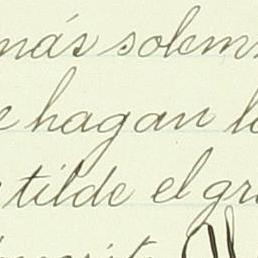 más solem
e hagan l
tilde el gr